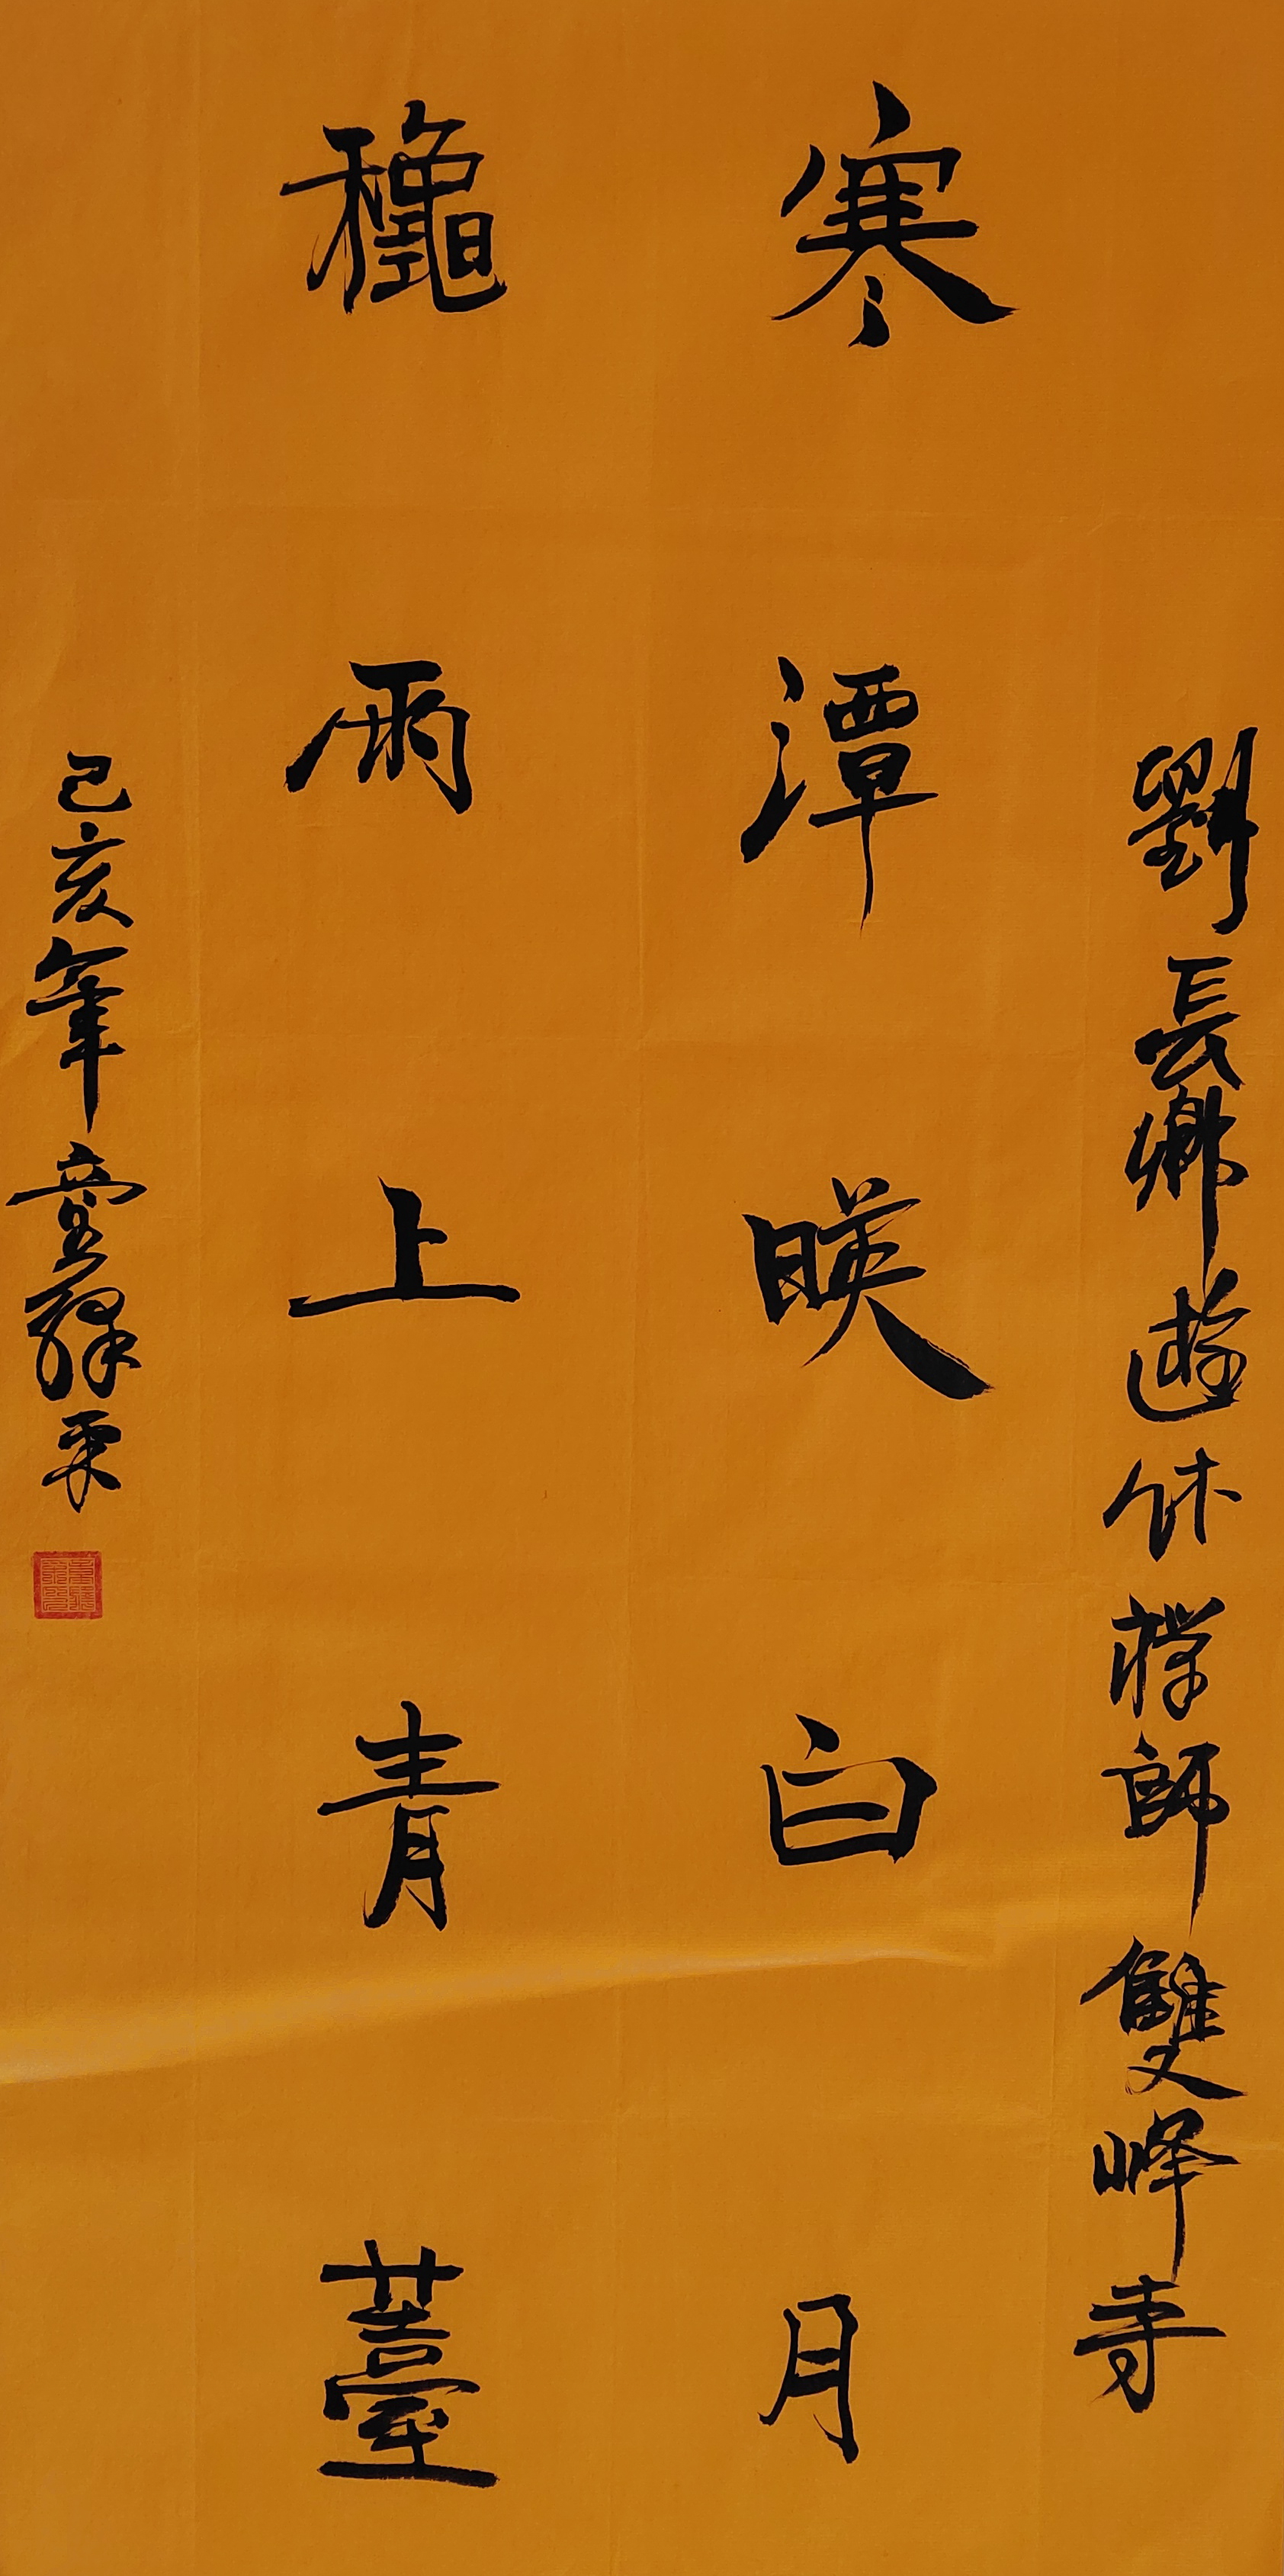 劉長卿遊休禪師雙峰寺
寒潭暎白月
龝雨上青薹
己亥年童繹栗